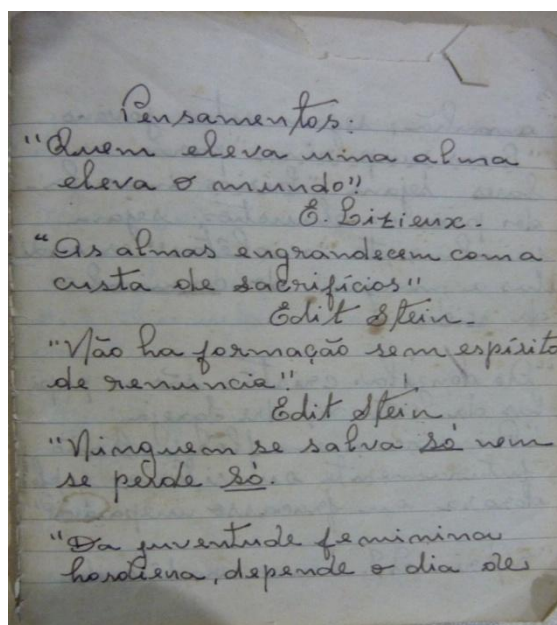 Pensamentos:
"Quem eleva uma alma
eleva o mundo"!
E. Lizieux.
"As almas engrandecem com a
custa de sacrifícios"
Edit Stein.
"Não ha formação sem espírito
de renuncia".
Edit Stein
"Ninguem se salva só nem
se perde só.
"Da juventude feminina
hordiena, depende o dia de